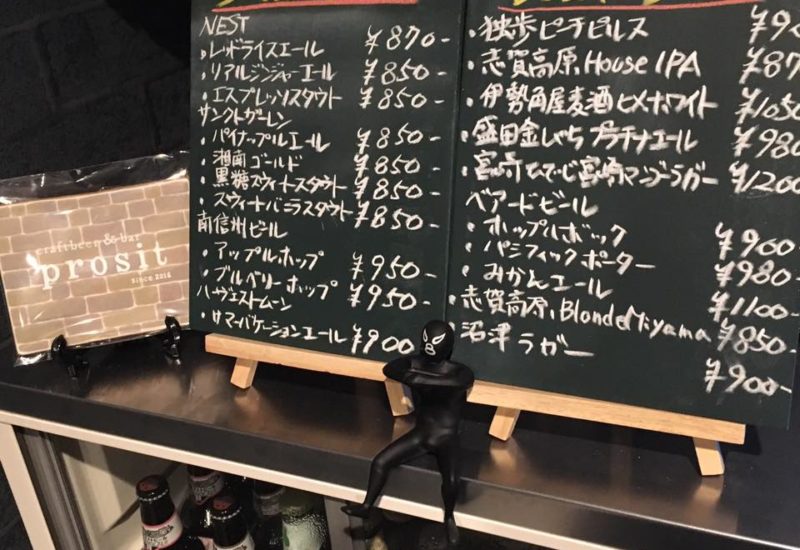 NEST
・レッドライスエール ¥870-
・リアルジンジャーエール ¥850-
・エスプレッソスタウト ¥850-
サンクトガーレン
・パイナップルエール ¥850-
・湘南ゴールド ¥850-
・黒糖スウィートスタウト ¥850-
・スウィートバニラスタウト ¥850-
南信州ビール
・アップルホップ ¥950-
・ブルベリーホップ ¥950-
ハーヴェストムーン
・サマーバケーションエール ¥900-
・独歩ピーチピルス
・志賀高原House IPA
・伊勢角屋麦酒ヒメホワイト ¥1050
・盛田金しゃちプラチナエール ¥980
・宮崎ひでじ宮崎マンゴーラガー ¥1200
ベアードビール
・ホップルボック ¥900-
・パシフィックポーター ¥980-
・みかんエール ¥1100-
・志賀高原Blonde Miyama ¥850-
沼津ラガー ¥900-
craftbeer & bar
prosit
since 2015